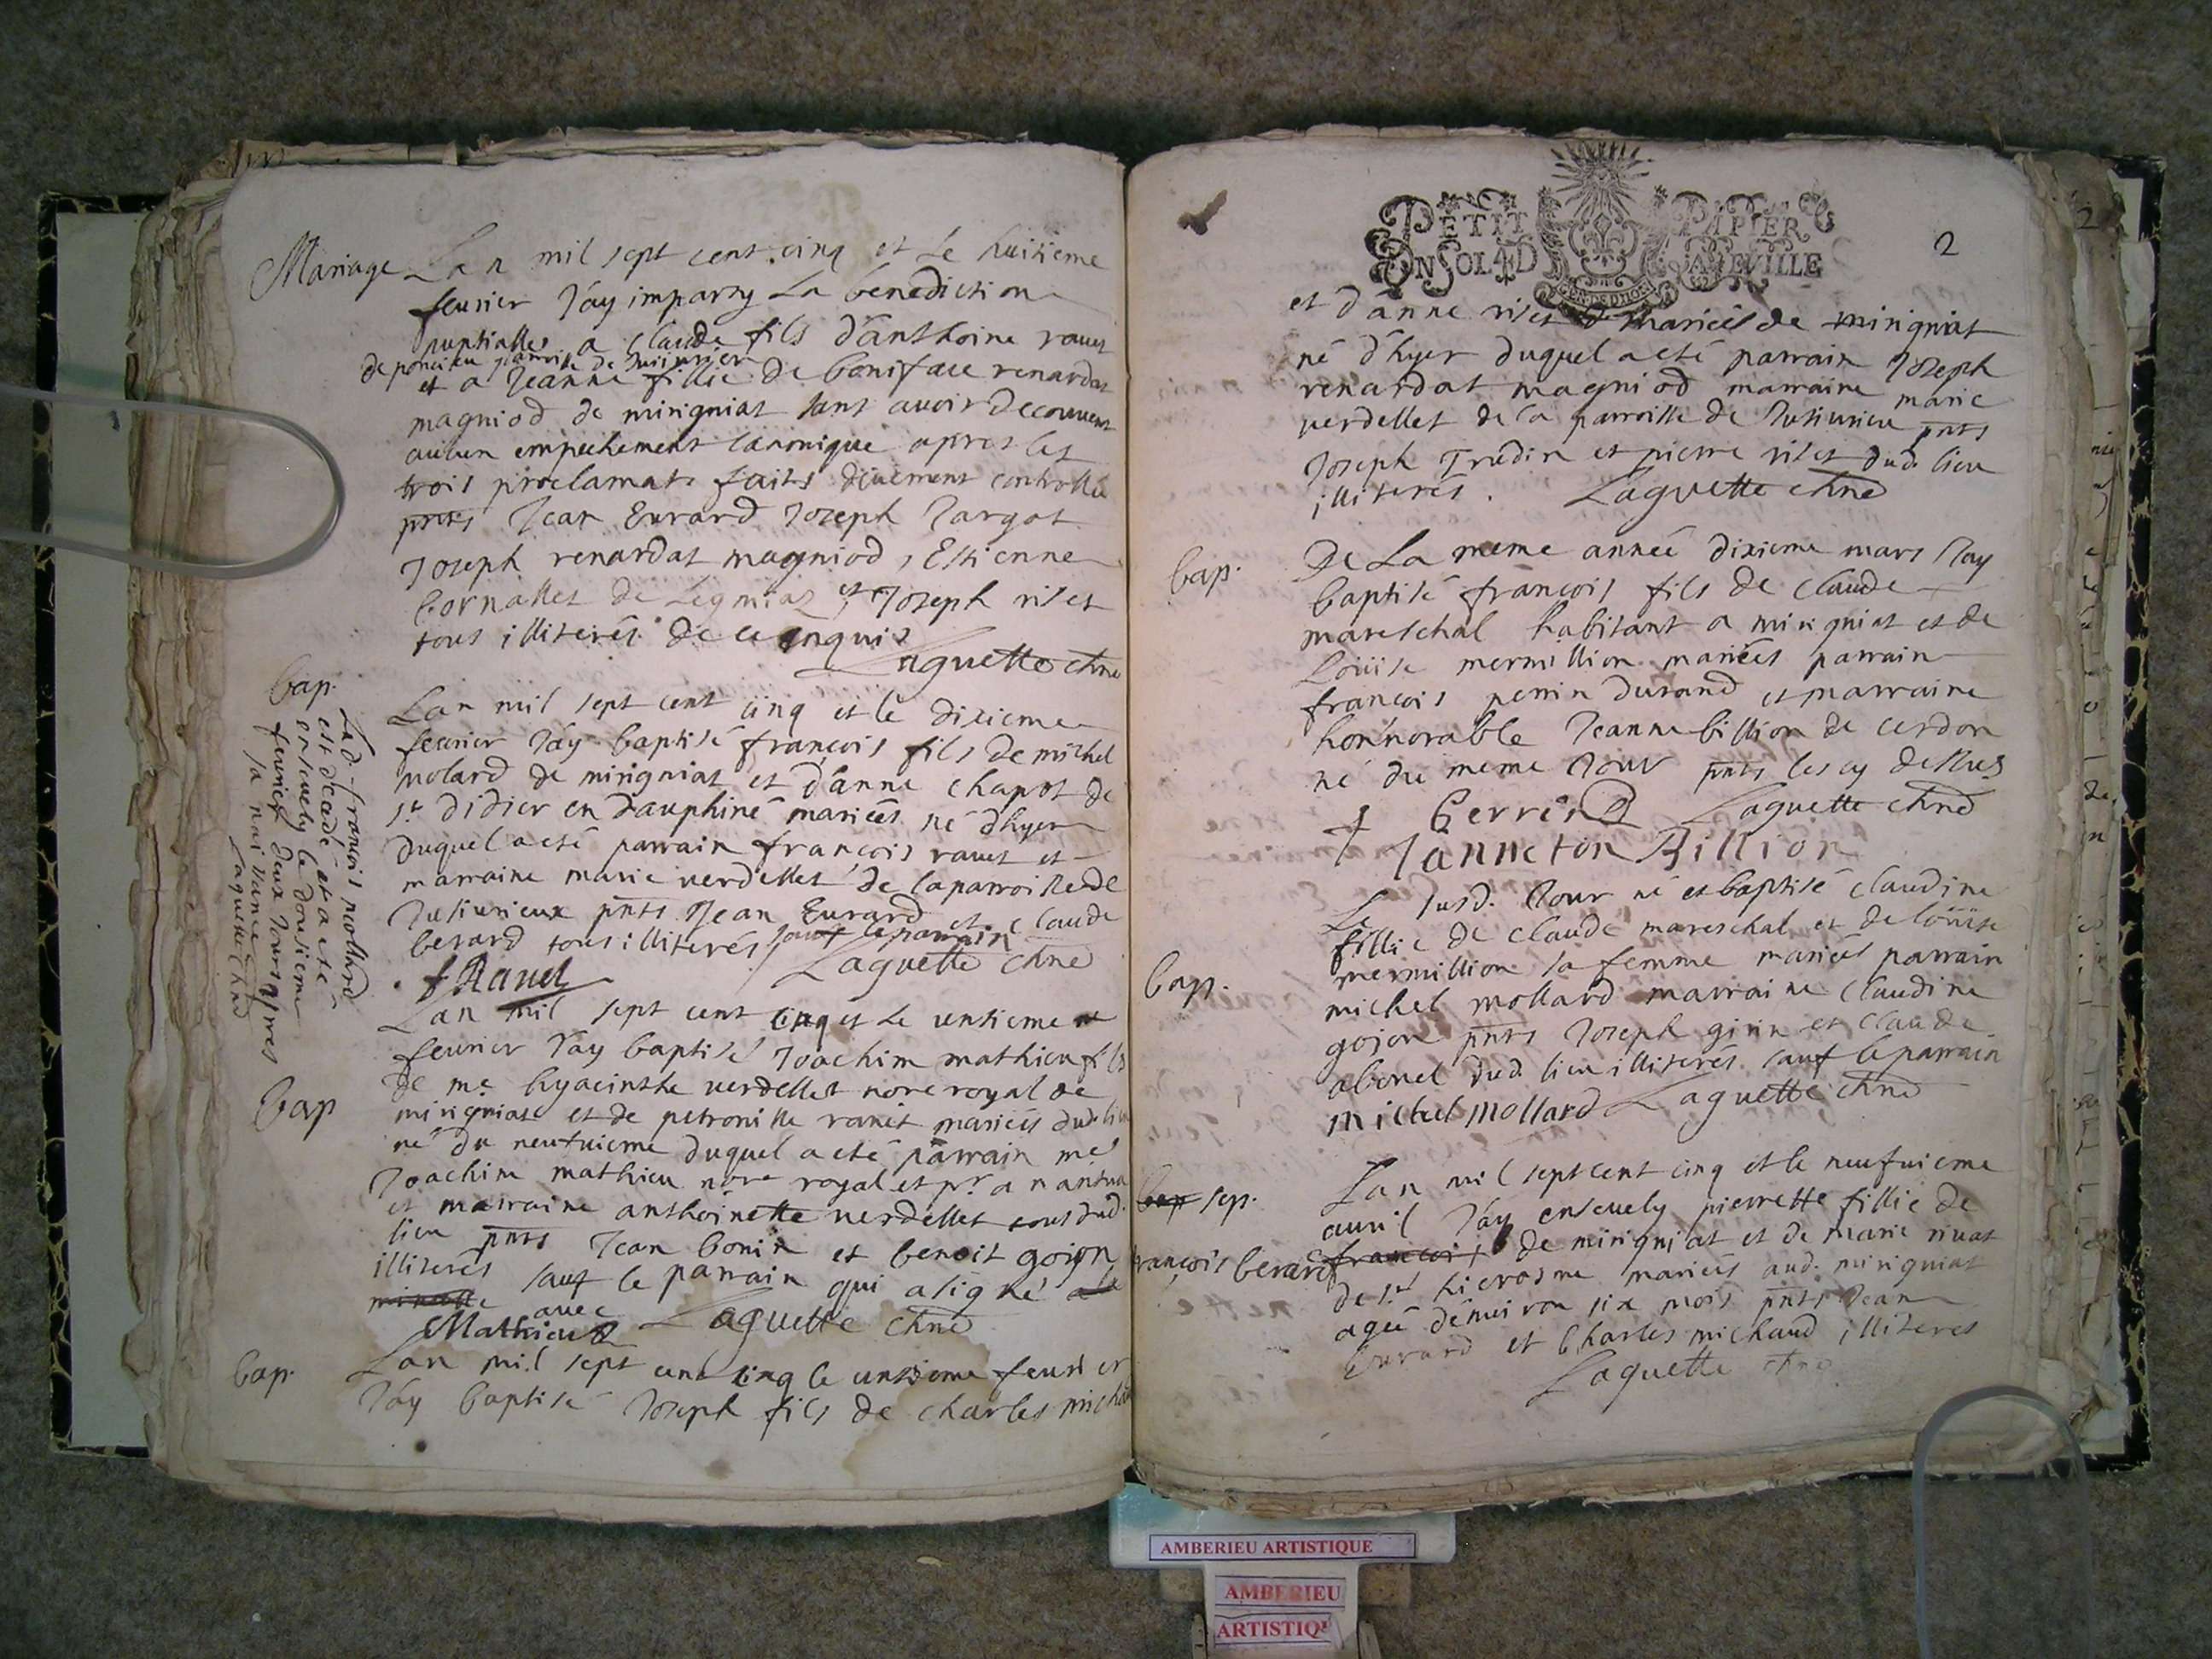 Mariage Lan mil sept cent cinq et le huitieme
feurier J'ay imparty La benediction
nuptialle a claude fils d'anthoine rauet
de poncieu parroisse de Jusiurieu
et a Jeanne fillie de boniface renardat
magniod de mirigniat sans auoir decouuert
aucun empechement canonique apres les
trois proclamats faits deuement controllés
pnts Jean Eurard Joseph Jargot
Joseph renardat magniod, Estienne
bornallet de Legniaz et Joseph riset
tous illiterés de ce enquis
Laguette chne
bap.
Lan mil sept cent cinq et le dixieme
feurier J'ay baptisé françois fils de michel
molard de mirigniat et d'anne chapot de
st didier en dauphiné mariées né d'hyer
duquel a eté parrain françois rauet et
marraine marie verdellet de la parroisse de
Jusiurieux pnts Jean Eurard et claude
berard tous illiterés sauf le parrain
f Rauet Laguette chne
Led. françois mollard
est decedé et a eté
enseuely le dousieme
feurier deux Jours apres
sa naissance
Laguette chne
bap
Lan mil sept cent cinq et Le unsieme
feurier J'ay baptisé Joachim mathieu fils
de me hyacinthe verdellet nore royal de
mirigniat et de petronille rauet mariées dud. lieu
né du neufuieme duquel a eté parrain me
Joachim mathieu nore royal et pr a nantua
et marraine anthoinette verdellet tous dud.
lieu pnts Jean bonin et benoit gojon
illiterés sauf le parrain qui a signé
avec
Mathieu Laguette chne
bap.
Lan mil sept cent cinq le unsieme feurier
J'ay baptisé Joseph fils de charles
PETIT PAPIER
UN SOL 4 D LA FEUILLE
GEN. DE DIION
2
et d'anne riset mariées de mirigniat
né d'hyer duquel a eté parrain Joseph
renardat magniod marraine marie
verdellet de la parroisse de Jusiurieu pnts
Joseph Trudin et pierre riset dud. lieu
illiterés. Laguette chne
bap.
De La meme année dixieme mars J'ay
baptisé françois fils de claude
mareschal habitant a mirigniat et de
Loüise mermillion mariées parrain
françois perrin durand et marraine
honnorable Jeanne billion de cerdon
né du meme Jour pnts les cy dessus
f Perrin Laguette chne
Janneton Billion
bap.
Le susd. Jour né et baptisé claudine
fillie de claude mareschal et de loüise
mermillion sa femme mariées parrain
michel mollard marraine claudine
gojon pnts Joseph girin et claude
abonel dud. lieu illiterés sauf le parrain
michel mollard Laguette chne
bap sep.
Lan mil sept cent cinq et le neufuieme
auril J'ay enseuely pierrette fillie de
françois berard françois de mirigniat et de marie riuat
de st hierosme mariées aud. mirigniat
agée d'enuiron six mois pnts Jean
Eurard et Charles michaud illiteres
Laguette chne
AMBERIEU ARTISTIQUE
AMBERIEU
ARTISTIQU